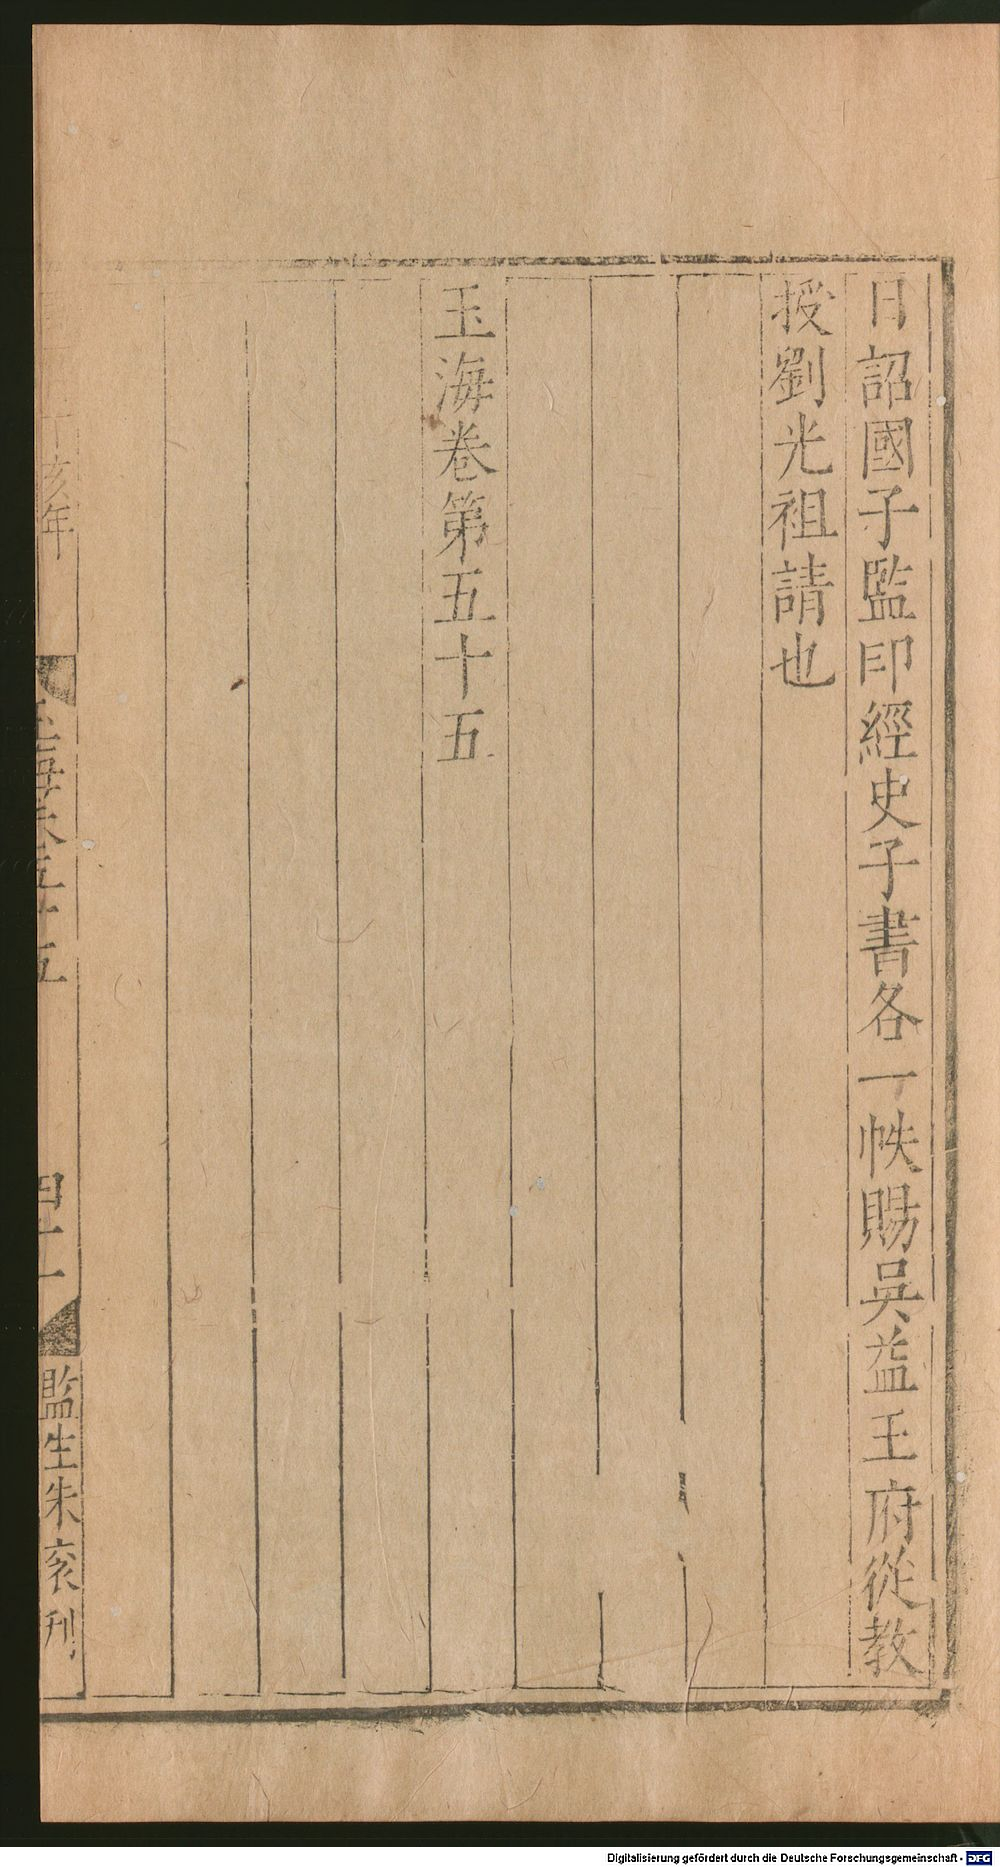 日詔國子監印經史子書各一帙賜吳益王府從教
授劉光祖請也
玉海卷第五十五
亥年
玉海卷五十五
四十一
監生朱衮刊
Digitalisierung gefördert durch die Deutsche Forschungsgemeinschaft - DFG